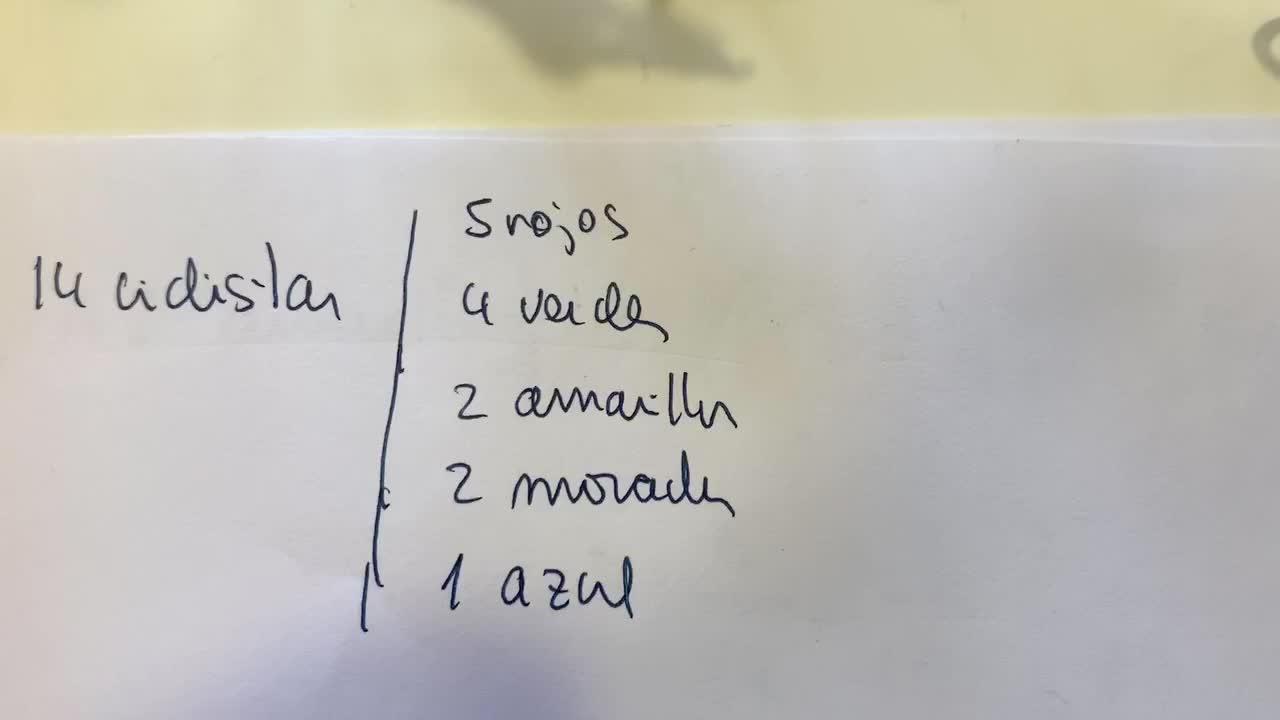 14 ciclistas
5 rojos
4 verdes
2 amarillos
2 morados
1 azul